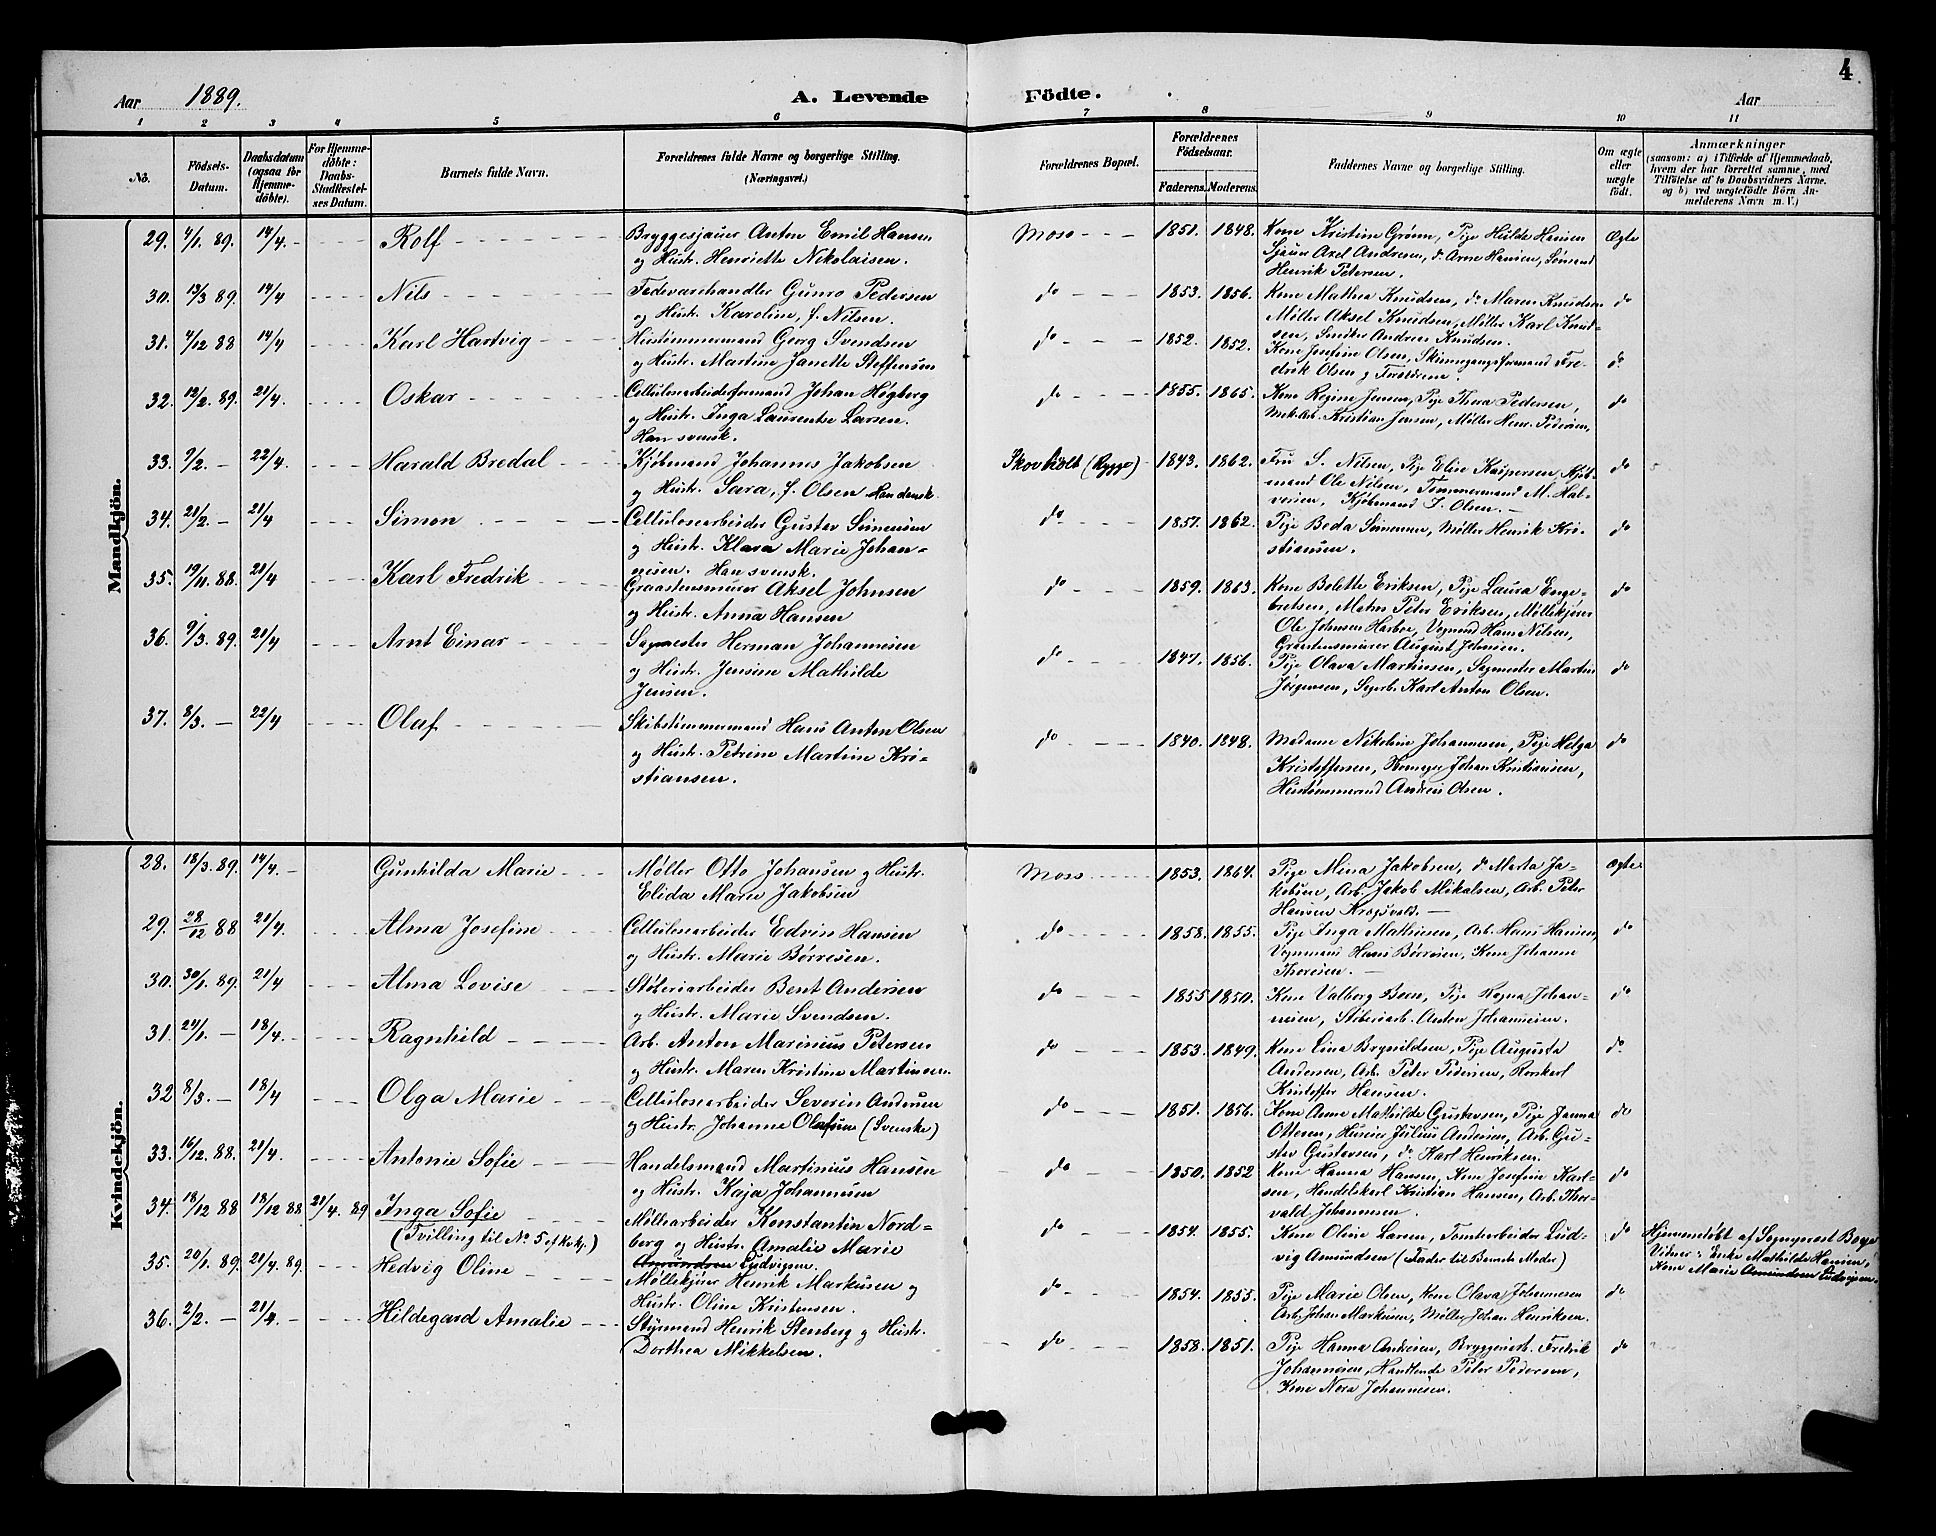 4
Aar 1889.
A. Levende Födte.
Aar
1 2 3 4 5 6 7 8 9 10 11
No.
Födsels-Datum.
Daabsdatum (ogsaa for Hjemmedöbte).
For Hjemmedöbte: Daabs-Stadfæstelses Datum.
Barnets fulde Navn.
Forældrenes fulde Navne og borgerlige Stilling. (Næringsvei.)
Forældrenes Bopæl.
Forældrenes Födselsaar.
Faderens. Moderens.
Faddernes Navne og borgerlige Stilling.
Om ægte eller uægte födt.
Anmærkninger
(saasom: a) i Tilfælde af Hjemmedaab, hvem der har forrettet samme, med Tilföielse af to Daabsvidners Navne, og b) ved uægtefödte Börn Anmelderens Navn m. V.)
Mandkjön.
29. 4/1. 89. 14/4. Rolf
Bryggesjauer Anton Emil Hansen
og Hustr. Henriette Nikolaisen.
Moss 1851. 1848.
Kone Kristine Grønn, Pige Hulda Hansen
Sjauer Axel Andresen, do Arne Hansen, Sømand
Henrik Petersen.
Ægte
30. 13/3 89. 14/4 Nils
Fedevarehandler Gunro Pedersen
og Hustr. Karoline, f. Nilsen.
do 1853. 1856.
Kone Mathea Knudsen, do Maren Knudsen
Møller Aksel Knudsen, Møller Karl Knud-
sen, Snedker Andreas Knudsen.
do
31. 4/12 88 14/4 Karl Hartvig
Hustømmermand Georg Svendsen
og Hustr. Martine Janette Steffensen
do 1852. 1852.
Kone Josefine Olsen, Skinnegangsformand Fre-
drik Olsen og Forældrene.
do
32. 12/2. 89. 21/4. Oskar
Cellulosearbeiderformand Johan Högberg
og Hustr. Inga Laurentse Larsen.
Han svensk.
do 1855. 1865.
Kone Regine Jensen, Pige Thora Pedersen,
Mek. Arb. Kristian Jensen, Møller Henr. Pedersen,
do
33. 9/2. — 22/4. Harald Bredal
Kjøbmand Johannes Jakobsen
og Hustr. Sara, f. Olsen Han dansk.
Skovholt (Rygge) 1843. 1862.
Fru S. Nilsen, Pige Elise Kaspersen, Kjøb-
mand Ole Nilsen, Tømmermand M. Hal-
versen, Kjøbmand I. Olsen. —
do
34. 21/2. — 21/4 Simon
Cellulosearbeider Gustav Simensen
og Hustr. Klara Marie Johan-
nesen. Han svensk.
do 1857. 1862.
Pige Beda Simensen, Møller Henrik Kri-
stiansen.
do
35. 19/11. 88. 21/4 Karl Fredrik
Graastensmurer Aksel Johnsen
og Hustr. Anna Hansen
do 1859. 1863.
Kone Bolette Eriksen, Pige Laura Enge-
bretsen, Matros Peter Eriksen, Møllekjører
Ole Johnsen Harboe, Vognmd Hans Nilsen,
Graastensmurer August Johnsen.
do
36. 9/3. 89. 21/4 Arnt Einar
Sagmester Herman Johannesen
og Hustr. Jensine Mathilde
Jensen.
do 1847. 1856.
Pige Olava Martinsen, Sagmester Martin
Jørgensen, Sagarb. Karl Anton Olsen.
do
37. 8/3. — 22/4 Olaf
Skibstømmermand Hans Anton Olsen
og Hustr. Petrine Martine Kri-
stiansen.
do 1840. 1848.
Madame Nikoline Johannesen, Pige Helga
Kristoffersen, Johan Kristiansen,
Hustømmermand Andreas Olsen.
do
Kvindekjön.
28. 18/3. 89. 14/4. — Gunhilda Marie
Møller Otto Johansen og Hustr.
Elida Marie Jakobsen
Moss 1853. 1864.
Pige Mina Jakobsen, do Marta Ja-
kobsen, Arb. Jakob Mikalsen, Arb. Peter
Hansen Krogsvold. —
Ægte
29. 28/12 88 21/4. Alma Josefine
Cellulosearbeider Edvin Hansen
og Hustr. Marie Børresen.
do 1858. 1855.
Pige Inga Mathisen, Arb. Hans Hansen,
Vognmand Hans Børresen, Kone Johanne
Thoresen. —
do
30. 30/1. 89. 21/4 Alma Lovise
Støberiarbeider Bent Andersen
og Hustr. Marie Svendsen.
do 1855 1850.
Kone Valborg Boen, Pige Ragna Johan-
nesen, Støberiarb. Anton Johannesen.
do
31. 24/1. — 18/4. Ragnhild
Arb. Anton Marinius Petersen
og Hustr. Maren Kristine Martinsen.
do 1853. 1849.
Kone Lina Brynildsen, Pige Augusta
Andersen, Arb. Peter Pedersen, Rorskarl
Kristoffer Hansen.
do
32 8/3. — 18/4 Olga Marie
Cellulosearbeider Severin Andersen
og Hustr. Johanne Olafsen (Svenske)
do 1851. 1856.
Kone Anne Mathilde Gustavsen, Pige Janna
Ottesen, Huseier Julius Andersen, Arb. Gu-
stav Gustavsen, do Karl Henriksen.
do
33. 16/12. 88. 21/4. Antonie Sofie
Handelsmand Martinius Hansen
og Hustr. Kaja Johannesen
do 1850. 1852
Kone Hanna Hansen, Kone Josefine Karl-
sen, Handelskarl Kristian Hansen, Arb. Thor-
vald Johannesen.
do
34. 18/12 88 18/12 88 21/4. 89 Inga Sofie
(Tvilling til No 5 af Kvkj.)
Møllearbeider Konstantin Nord-
berg og Hustr. Amalie Marie
Amundsen Ludvigsen.
do 1854. 1855.
Kone Oline Larsen, Tomtearbeider Lud-
vig Amundsen (Fader til Barnets Moder)
do
Hjemmedøbt af Sogneprest Boye
Vidner: Enke Mathilde Hansen,
Kone Marie Amundsen Ludvigsen.
35. 20/1. 89. 21/4. 89. Hedvig Oline
Møllekjører Henrik Markusen og
Hustr. Oline Kristensen.
do 1854. 1855.
Pige Marie Olsen, Kone Olava Johannesen
Arb. Johan Markusen, Møller Johan Henriksen.
do
36. 2/2. — 21/4. Hildegard Amalie
Styrmand Henrik Stenberg og Hustr.
Dorthea Mikkelsen.
do 1858. 1851.
Pige Hanna Andresen, Bryggeriarb. Fredrik
Johannesen, Handlende Peter Pedersen,
Kone Nora Johannesen.
do